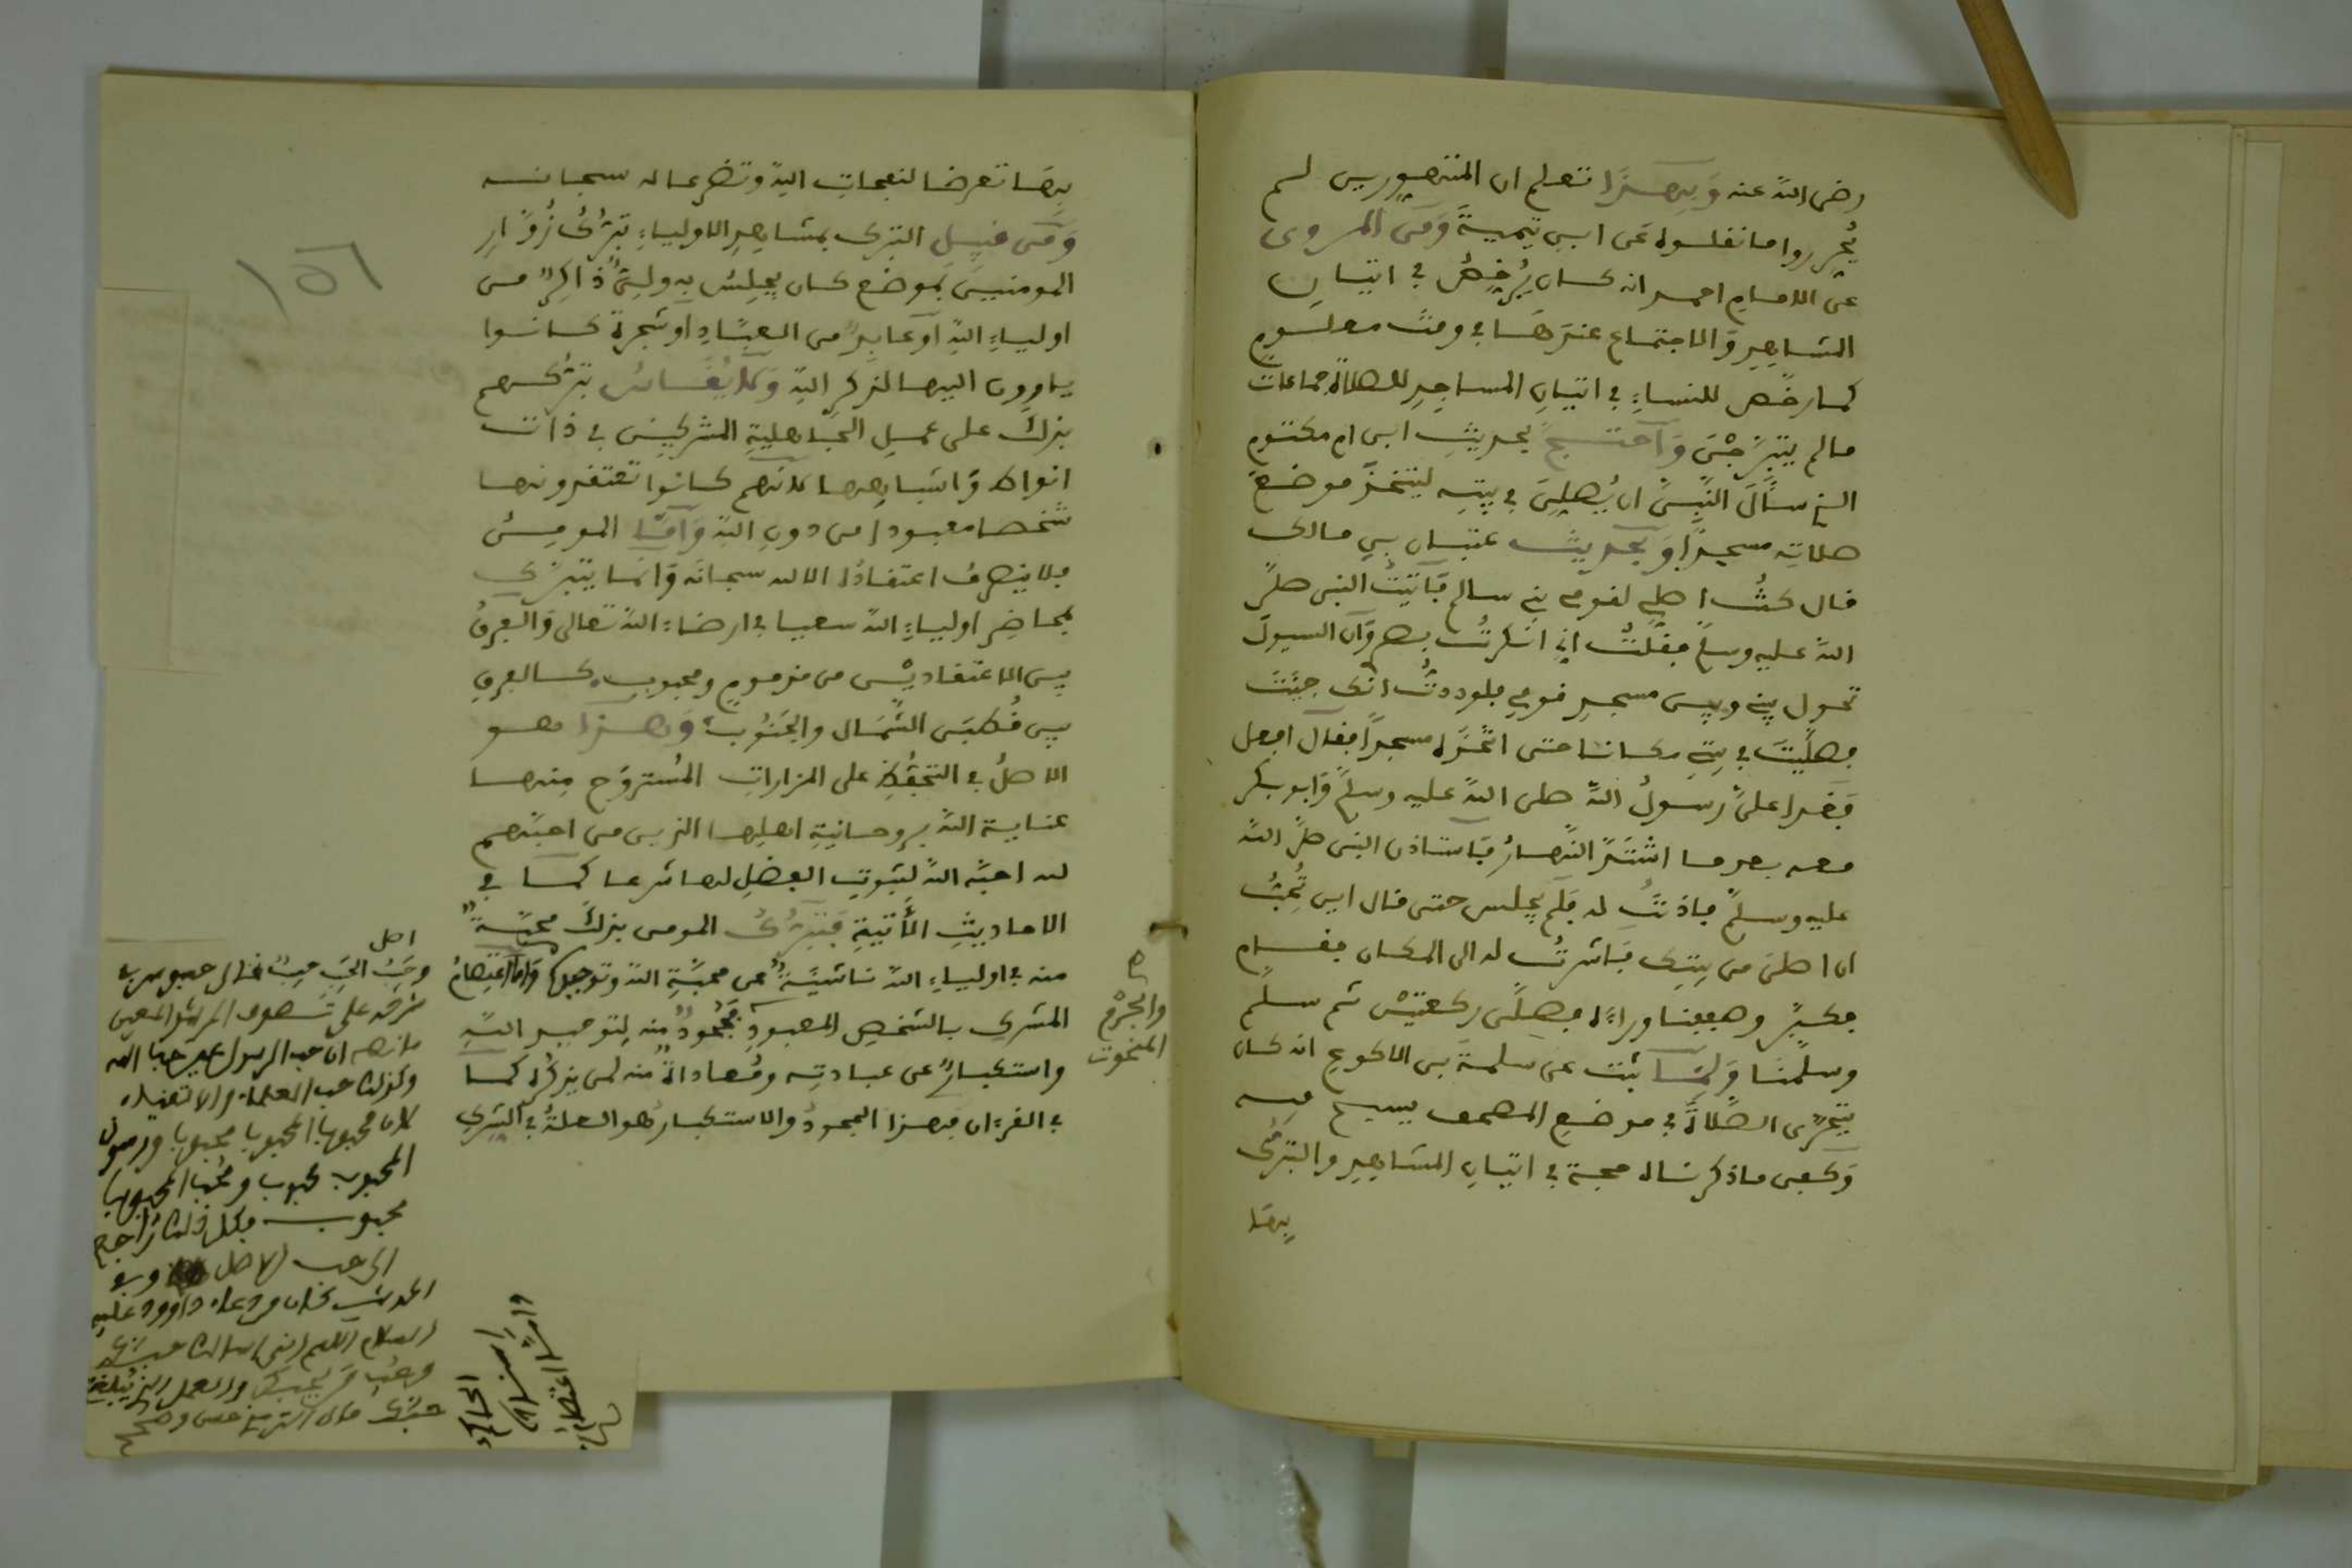 رضى الله عنه وبهذا تعلم ان المتهورين لم
يُحرروا ما نقلوه عن ابن تيمية ومن المروى
عن الامام احمد انه كان يُرخص في اتيان
المشاهد والاجتماع عندها في وقت معلوم
كما رخص للنساء في اتيان المساجد للصلاة جماعات
ما لم يتبرجن واحتج بحديث ابن ام مكتوم
الذي سأل النبى ان يُصلي في بيته ليتخذ موضع
صلاته مسجدا وبحديث عتبان بن مالك
قال كنت اصلي لقومي بني سالم فأتيت النبى صلى
الله عليه وسلم فقلت اني انكرت بصرى وان السيول
تحول بيني وبين مسجد قومي فلوددت انك جئت
فصليت في بيتي مكانا حتى اتخذه مسجدا فقال افعل
فغدا علىّ رسول الله صلى الله عليه وسلم وابو بكر
معه بعد ما اشتد النهار فاستاذن النبى صلى الله
عليه وسلم فاذنت له فلم يجلس حتى قال اين تُحب
ان اصلى من بيتك فاشرت له الى المكان فقام
فكبر وصففنا وراءه فصلى ركعتين ثم سلم
وسلمنا ولما ثبت عن سلمة بن الاكوع انه كان
يتحرى الصلاة في موضع المصحف يسبح فيه
وكفى ما ذكرناه حجة في اتيان المشاهد والتبرك
بها
بها تعرضا لنفحات الله وتضرعا له سبحانه
ومن قبيل التبرك بمشاهد الاولياء تبرك زُوَّار
المومنين بموضع كان يجلس به ولي ذاكر من
اولياء الله او عابد من العباد او شجرة كانوا
ياوون اليها لذكر الله ولا يقاس تبركهم
بذلك على عمل الجاهلية المشركين في ذات
انواط واشباهها لانهم كانوا تعتقدونها
شخصا معبودا من دون الله واما المومن
فلا ينصرف اعتقاده الا لله سبحانه وانما يتبرك
بمحاضر اولياء الله سعيا في ارضاء الله تعالى والفرق
بين الاعتقادين من مذموم ومحبوب كالفرق
بين قُطبَى الشمال والجنوب وهذا هو
الاصل في التحفظ على المزارات المُستروح منها
عناية الله بروحانية اهلها الذين من احبهم
لله احبه الله لثبوت الفضل لها شرعا كما في
الاحاديث الأتية فتبرك المومن بذلك محبة
منه في اولياء الله ناشية عن محبة الله وتوحيده واما اعتصام
المشرك بالشخص المعبود فجحود منه لتوحيد الله
واستكبار عن عبادته ومُعاداة منه لمن يذكره كما
في القرءان فهذا الجحود والاستكبار هو العلة في الشرك
والجزم
المنحوت
اصل
ان حب الرسول عين حب الله
وكذلك حب العلماء والاتقياء
لان محبوب المحبوب محبوب ورسول
المحبوب محبوب ومُحب المحبوب
محبوب فكل ذلك راجع
الى حب الاصل وفي
الحديث كان من دعاء داوود عليه
السلام اللهم انى اسالك حبك
وحُب من يحبك والعمل الذي يُبلغني
حبك قال الترمذي حسن